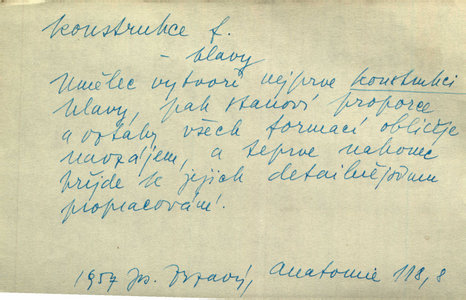 konstrukce f.
– hlavy
Umělec vytvoří nejprve konstrukci
hlavy, pak stanoví proporce
a vztahy všech formací obličeje
navzájem, a teprve nakonec
přijde k jejich detailnějšímu
propracování.
1957 Js. Zrzavý, Anatomie 118,8